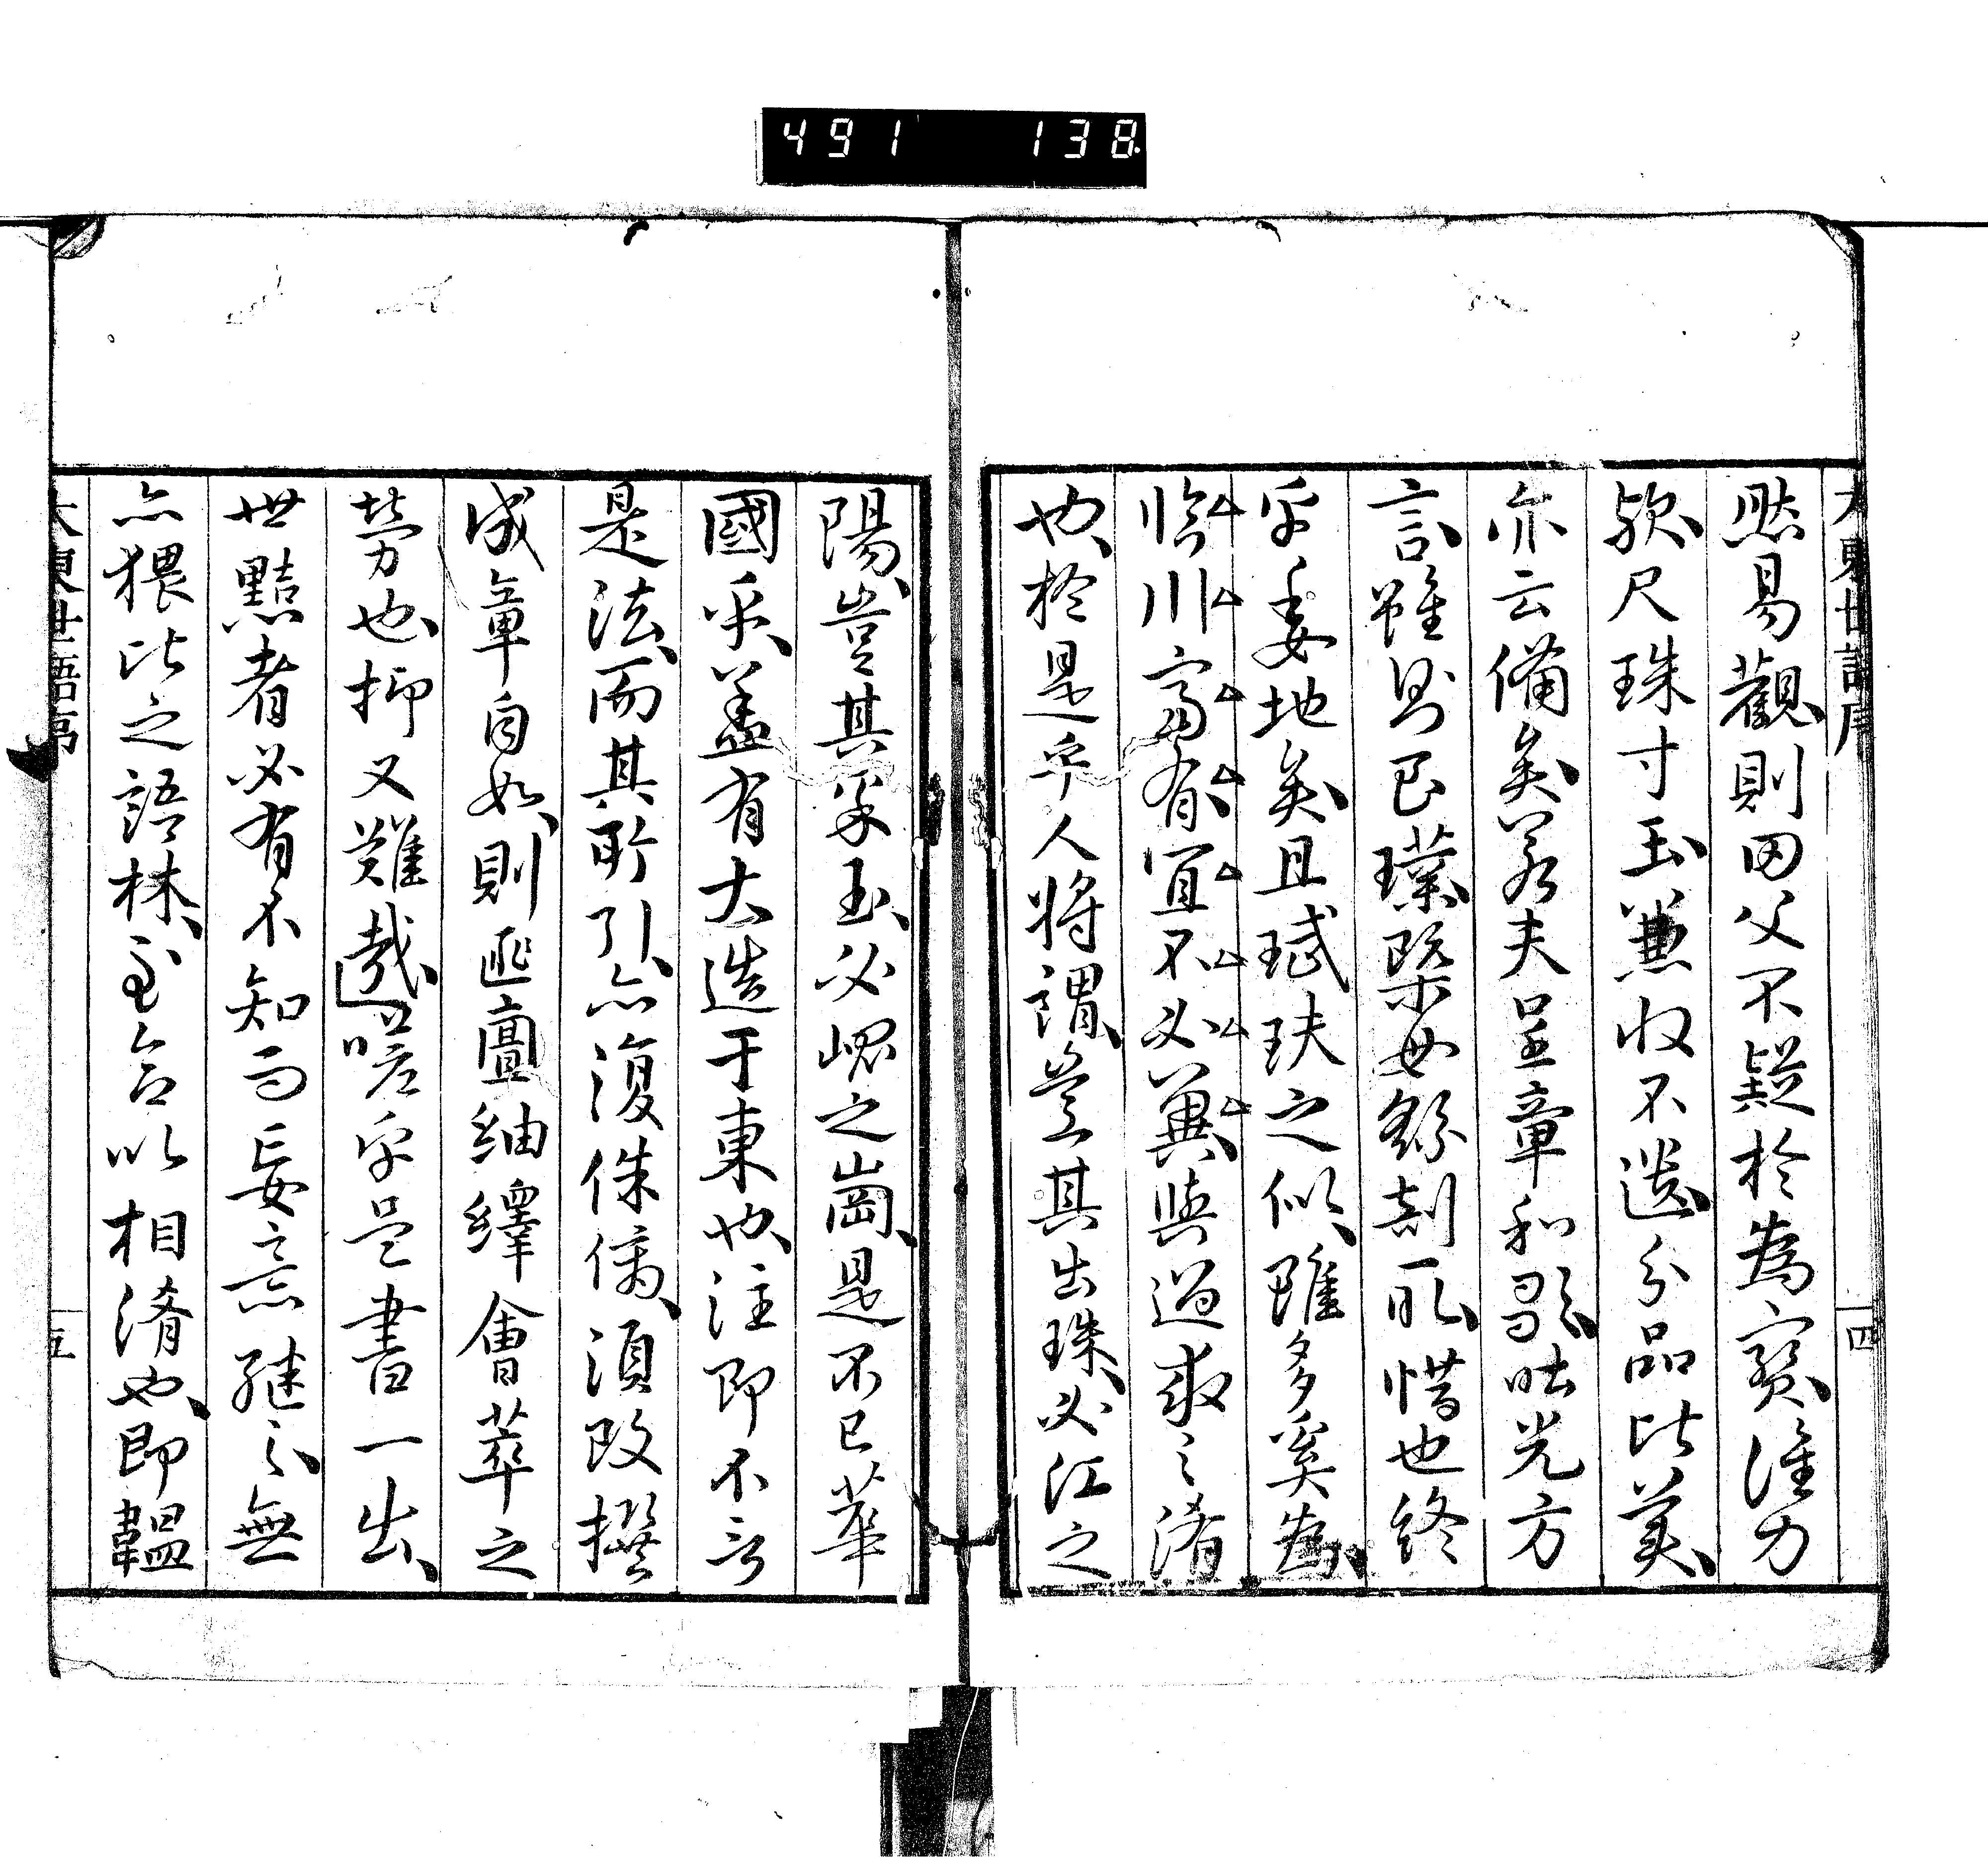 491 138
大東世語序
四
然易觀則田父不疑於為寶誰力
歟尺珠寸玉兼收不遺分品比美
亦云備矣若夫呈章和 光方
言雖則已璞槩毋 剖 惜也終
乎委地矣且珷玞之似雖多奚為
臨川富有宜不必冀與過求之淆
也於是乎人將謂豈其出珠必江之
陽豈其采玉必崐之崗是不已華
國乎蓋有大造于東也注即不言
是法而其所引亦復侏 須改撰
成章自如則匪啻紬繹會萃之
勞也抑又難哉嗟乎是書一出
世黠者必有不知而妄意継之無
亦猥比之語林 以相淆也即韞
大東世語序
五